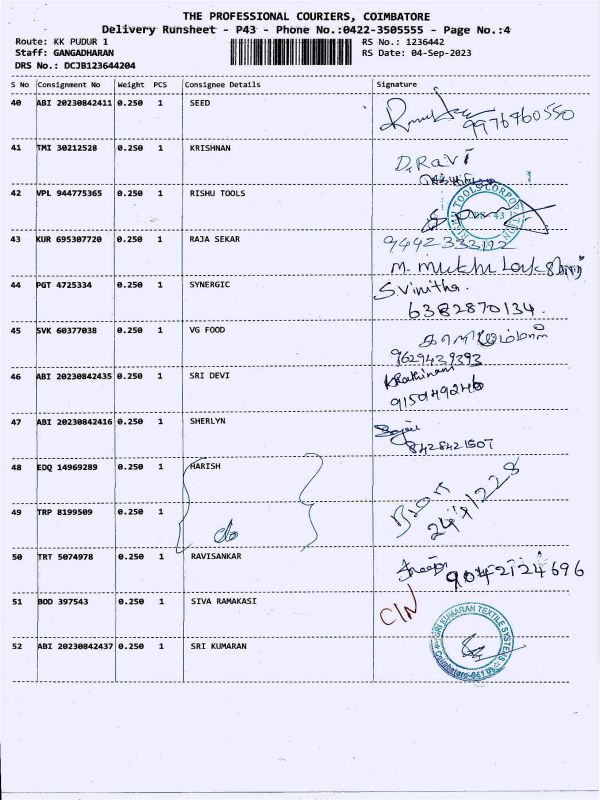 THE PROFESSIONAL COURIERS, COIMBATORE
Delivery Runsheet - P43 - Phone No.:0422-3505555 - Page No.:4
Route: KK PUDUR 1 RS No.: 1236442
Staff: GANGADHARAN RS Date: 04-Sep-2023
DRS No.: DCJB123644204
S No Consignment No Weight PCS Consignee Details Signature
40 ABI 20230842411 0.250 1 SEED
9976460550
41 TMI 30212528 0.250 1 KRISHNAN
D.Ravi
42 VPL 944775365 0.250 1 RISHU TOOLS
43 KUR 695307720 0.250 1 RAJA SEKAR
44 PGT 4725334 0.250 1 SYNERGIC S.Vinitha.
6382870134.
45 SVK 60377038 0.250 1 VG FOOD
9629439393
46 ABI 20230842435 0.250 1 SRI DEVI
47 ABI 20230842416 0.250 1 SHERLYN
8428421507
48 EDQ 14969289 0.250 1 HARISH
49 TRP 8199509 0.250 1
do
50 TRT 5074978 0.250 1 RAVISANKAR
9042124696
51 BOD 397543 0.250 1 SIVA RAMAKASI
52 ABI 20230842437 0.250 1 SRI KUMARAN
SRI KUMARAN TEXTILE SYSTEMS